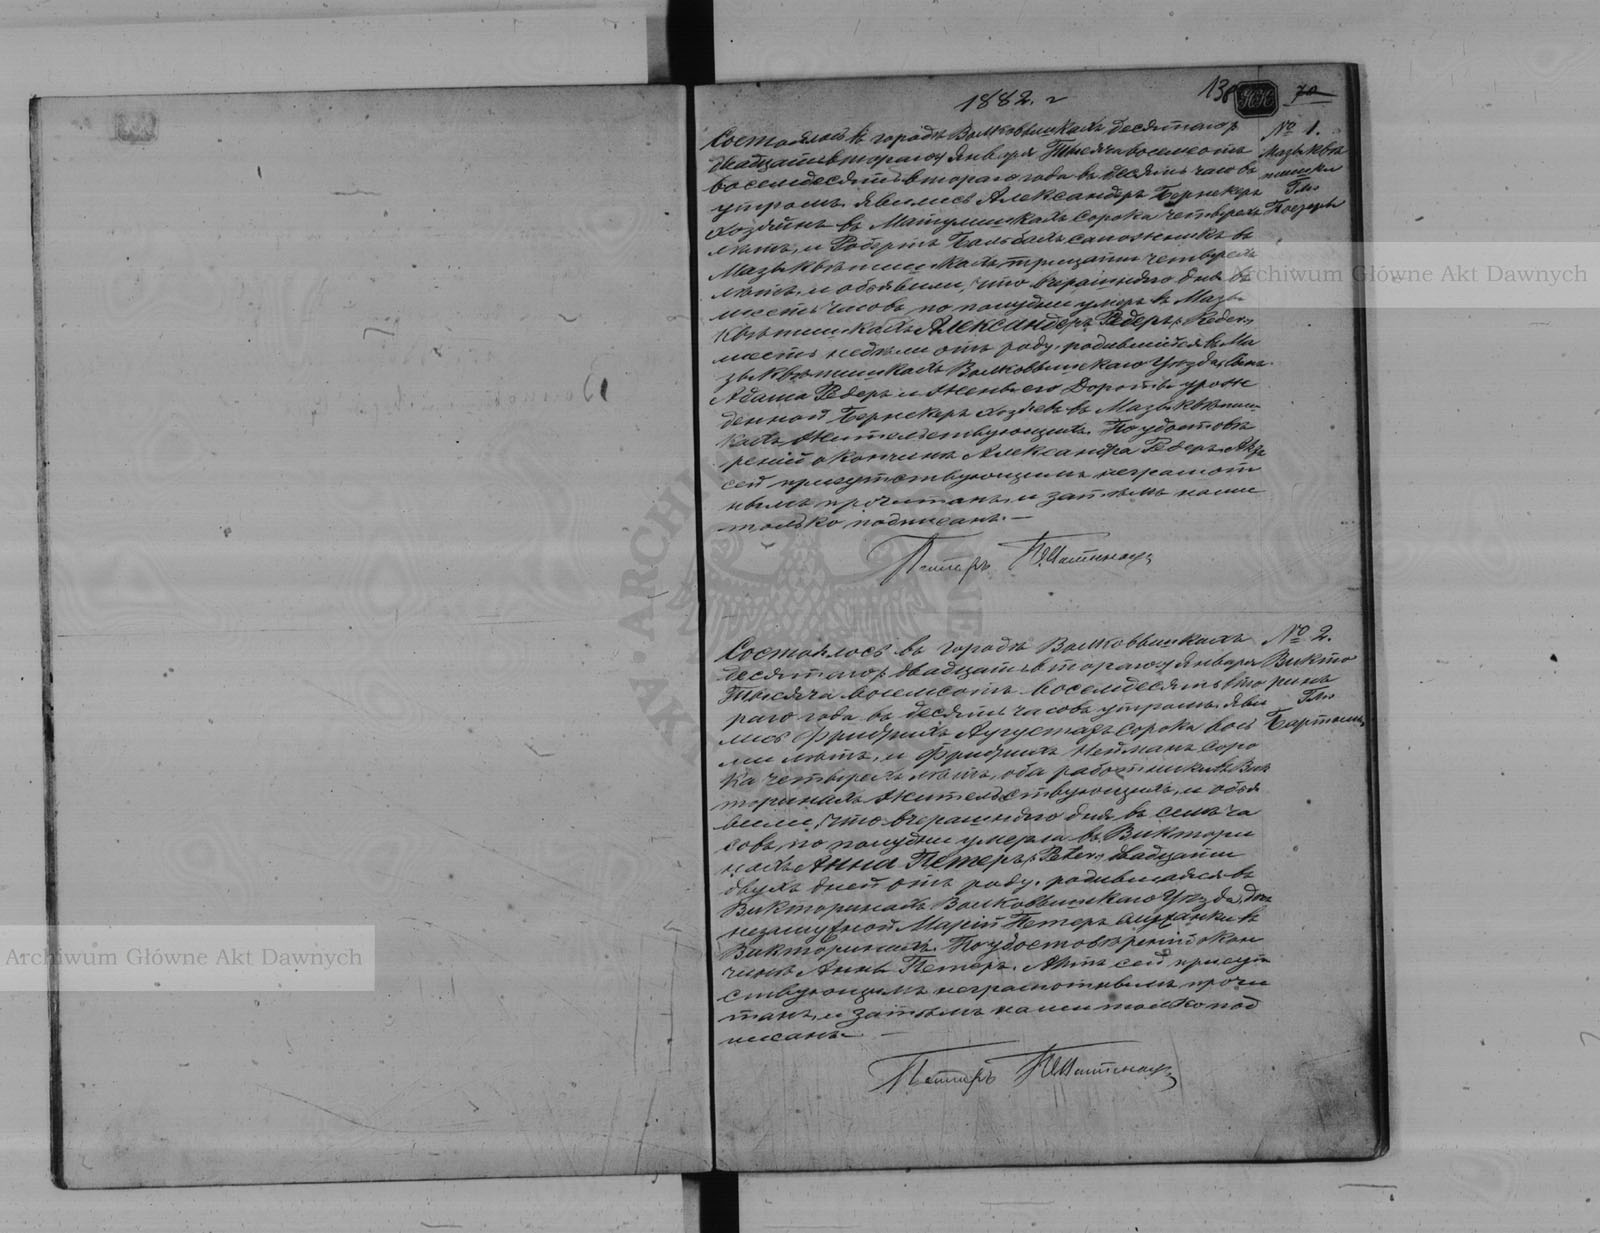 1882. г
136
НК
70
№ 1.
Мазыквѣ
тишки
Гм.
Состоялось въ городѣ Волковышкахъ десятаго,
двадцать втораго, Января Тысяча восемсотъ
восемдесятъ втораго года въ десять часовъ
утромъ. Явились Александеръ Бернекеръ
хозяинъ въ Матулишкахъ сорока четырехъ
лѣтъ, и Робертъ сапожникъ въ
Мазыквѣтишкахъ тридцати четырехъ
лѣтъ, и объявили, что вчерашняго дня въ
шесть часовъ по полудни умеръ въ Мазы
квѣтишкахъ Александеръ Редеръ, Reder,
шесть недѣли отъ роду, родившійся въ Ма
зыквѣтишкахъ Волковышскаго Уѣзда, сынъ
Адама Редеръ и жены его Дороты урож
денной Бернекеръ хозяевъ въ Мазыквѣтиш-
кахъ жительствующихъ. По удостовѣ
реніи о кончинѣ Александра Редеръ, Актъ
сей присутствующимъ неграмот
нымъ прочитанъ, и затѣмъ нами
только подписанъ. —
№ 2.
Викто
ринъ
Гм.
Состоялось въ городѣ Волковышкахъ
десятаго, двадцать втораго, Января
Тысяча восемсотъ восемдесятъ вто
раго года въ десять часовъ утромъ. Яви
лись Фридрихъ Аугустатъ сорока вось
ми лѣтъ, и Фридрихъ Нейманъ соро
ка четырехъ лѣтъ, оба работники въ Вик
торинахъ жительствующихъ, и объя
вили, что вчерашняго дня въ семь ча
совъ по полудни умерла въ Виктори
нахъ Анна Петеръ, Peter, двадцати
двухъ дней отъ роду, родившаяся въ
Викторинахъ Волковышскаго Уѣзда, дочь
незамужной Маріи Петеръ служанки въ
Викторинахъ. По удостовѣреніи о кон
чинѣ Анны Петеръ, Актъ сей присут
ствующимъ неграмотнымъ прочи
танъ, и затѣмъ нами только под
писанъ. —
Archiwum Główne Akt Dawnych
Archiwum Główne Akt Dawnych